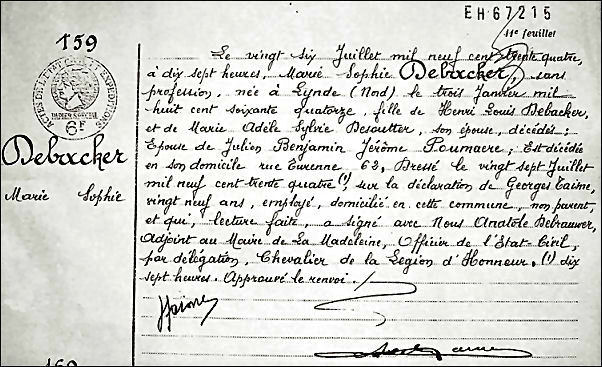 EH67215
11e feuillet
159
ACTES DE L'ETAT CIVIL EXPEDITIONS
PAPIER SPECIAL
6F
Debacker
Marie Sophie
Le vingt six Juillet mil neuf cent trente quatre,
à dix sept heures, Marie Sophie Debacker, sans
profession, née à Lynde (Nord) le trois Janvier mil
huit cent soixante quatorze, fille de Henri Louis Debacker
et de Marie Adèle Sylvie Desoutter, son épouse, décédés;
Epouse de Julien Benjamin Jérôme Poumaere; Est décédée
en son domicile rue Turenne 62, Dressé le vingt sept Juillet
mil neuf cent trente quatre (1), sur la déclaration de Georges
vingt neuf ans, employé, domicilié en cette commune, non parent,
et qui, lecture faite, a signé avec Nous Anatole Debrauwer,
Adjoint au Maire de La Madeleine, Officier de l'Etat-Civil,
par délégation, Chevalier de la Legion d'Honneur. (1) dix
sept heures. Approuvé le renvoi.
160